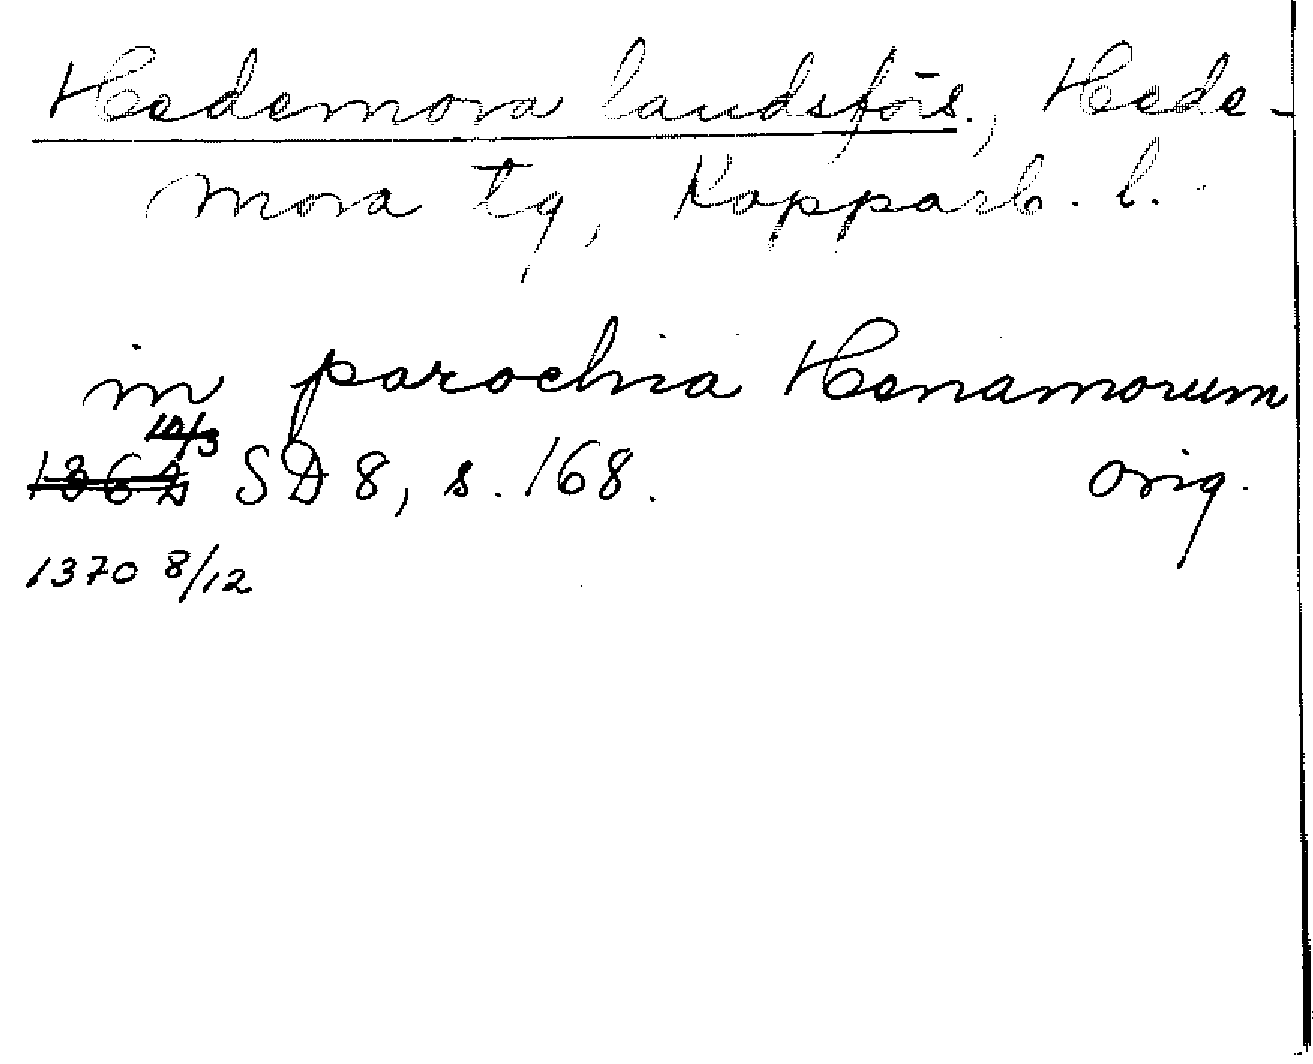 Hedemora landsförs., Hede-
mora tg, Kopparb. l.
in parochia Henamorum
1362 10/3 SD 8, s. 168. Orig.
1370 8/12